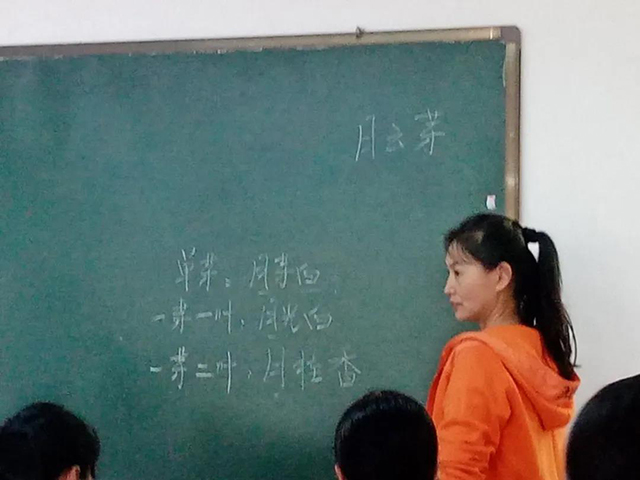 月云芽
单芽：月芽白
一芽一叶：月光白
一芽二叶：月桂香